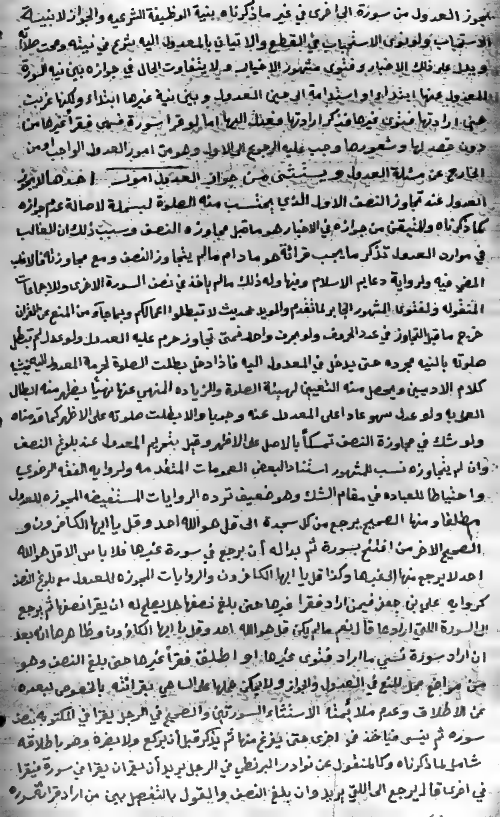 يجوز العدول من سورة الى اخرى في غير ما ذكرناه بنية الوظيفة الشرعيه والجواز لا بنية
الاستحباب ولو نوى الاستحباب في القطع والاتيان بالمعدول اليه
ويدل على ذلك الاخبار وفتوى مشهور الاخيار ولا يتفاوت الحال في جوازه بين نيه السورة
المعدول عنها ابتداء او استدامة الى حين العدول وبين نية غيرها ابتداء ولكنها
حين ارادتها فنوى غيرها فذكر ارادتها فعدل اليها اما لو قرا سورة فسهى فقرأ غيرها
دون قصد لها وشعور بها وجب عليه الرجوع الى الاول وهو من امور العدول الواجب او من
الخارج عن مسئلة العدول ويستثنى من جواز العدول امور احدها لا يجوز
العدول عند تجاوز النصف الاول الذي يحتسب منه الصلوة لبسملة لاصالة عدم جوازه
كما ذكرناه والمتيقن من جوازه في الاخبار هو ما قبل مجاوزة النصف وسبب ذلك ان الغالب
في موارد العدول تذكر ما يجب قراءته هو ما دام مالم يتجاوز النصف ومع مجاوزته فالاغلب
المضي فيه ولرواية دعايم الاسلام وفيها وله ذلك مالم ياخذ في نصف السورة الاخرى وللاجماعات
المنقوله وللفتوى المشهور الجابر لما تقدم والمويد بحديث لا تبطلوا اعمالكم وبما جاء من المنع عن القران
خرج ما قبل التجاوز في عدد الحروف ولو بحرف واحد فمتى تجاوز حرم عليه العدول ولو عدل لم تبطل
صلوته بالنيه مجرده حتى يدخل في المعدول اليه فاذا دخل بطلت الصلوة لحرمة العدول
كلام الادميين ويحصل منه التغيير لهيئة الصلوة والزياده المنهي عنها نهيا يظهر منه ابطال
العبادة ولو عدل سهوا عاد الى المعدول عنه وجوبا والا بطلت صلوته على الاظهر كما قدمناه
ولو شك في مجاوزة النصف تمسكا بالاصل على الاظهر وقيل بتحريم العدول عند بلوغ النصف
وان لم يتجاوزه نسب للمشهور استنادا لبعض العمومات المتقدمه ولروايه الفقه الرضوي
واحتياطا للعباده في مقام الشك وهو ضعيف ترده الروايات المستفيضه المجوزه للعدول
مطلقا ومنها الصحيح يرجع من كل سورة الى قل هو الله احد وقل يا ايها الكافرون و
الصحيح الاخر من افتتح بسورة ثم بدا له أن يرجع في سورة غيرها فلا باس الا قل هو الله
احد لا يرجع منها الى غيرها وكذا قل يا ايها الكافرون والروايات المجوزه للعدول مع بلوغ النصف
كروايه علي بن جعفر فيمن اراد فقرا غيرها حتى بلغ نصفها هل يصلح له ان يقرا نصفها ثم يرجع
الى السورة اللتي ارادها قال نعم مالم يكن قل هو الله احد وقل يا ايها الكافرون وظاهرها انه بعد
ان اراد سورة نسي ما اراد فنوى غيرها او اطلق فقرأ غيرها حتى بلغ النصف وهو
من مواضع محل المنع في العدول والجواز ولا يمكن حملها على الساهي بقرائته بالخصوص لبعده
عن الاطلاق وعدم ملائمته الاستثناء السورتين والصحيح في الرجل يقرا في المكتوبه نصف
سوره ثم ينسى فياخذ في اخرى حتى يفرغ منها ثم يذكر قبل أن يركع ولا يضره وهو باطلاقه
شامل لما ذكرناه وكالمنقول عن نوادر البزنطي في الرجل يريد أن يقرا في سورة فيقرا
في اخرى قال يرجع الى اللتي يريد وان بلغ النصف والقول بالتفصيل بين من اراد قرائة سورة